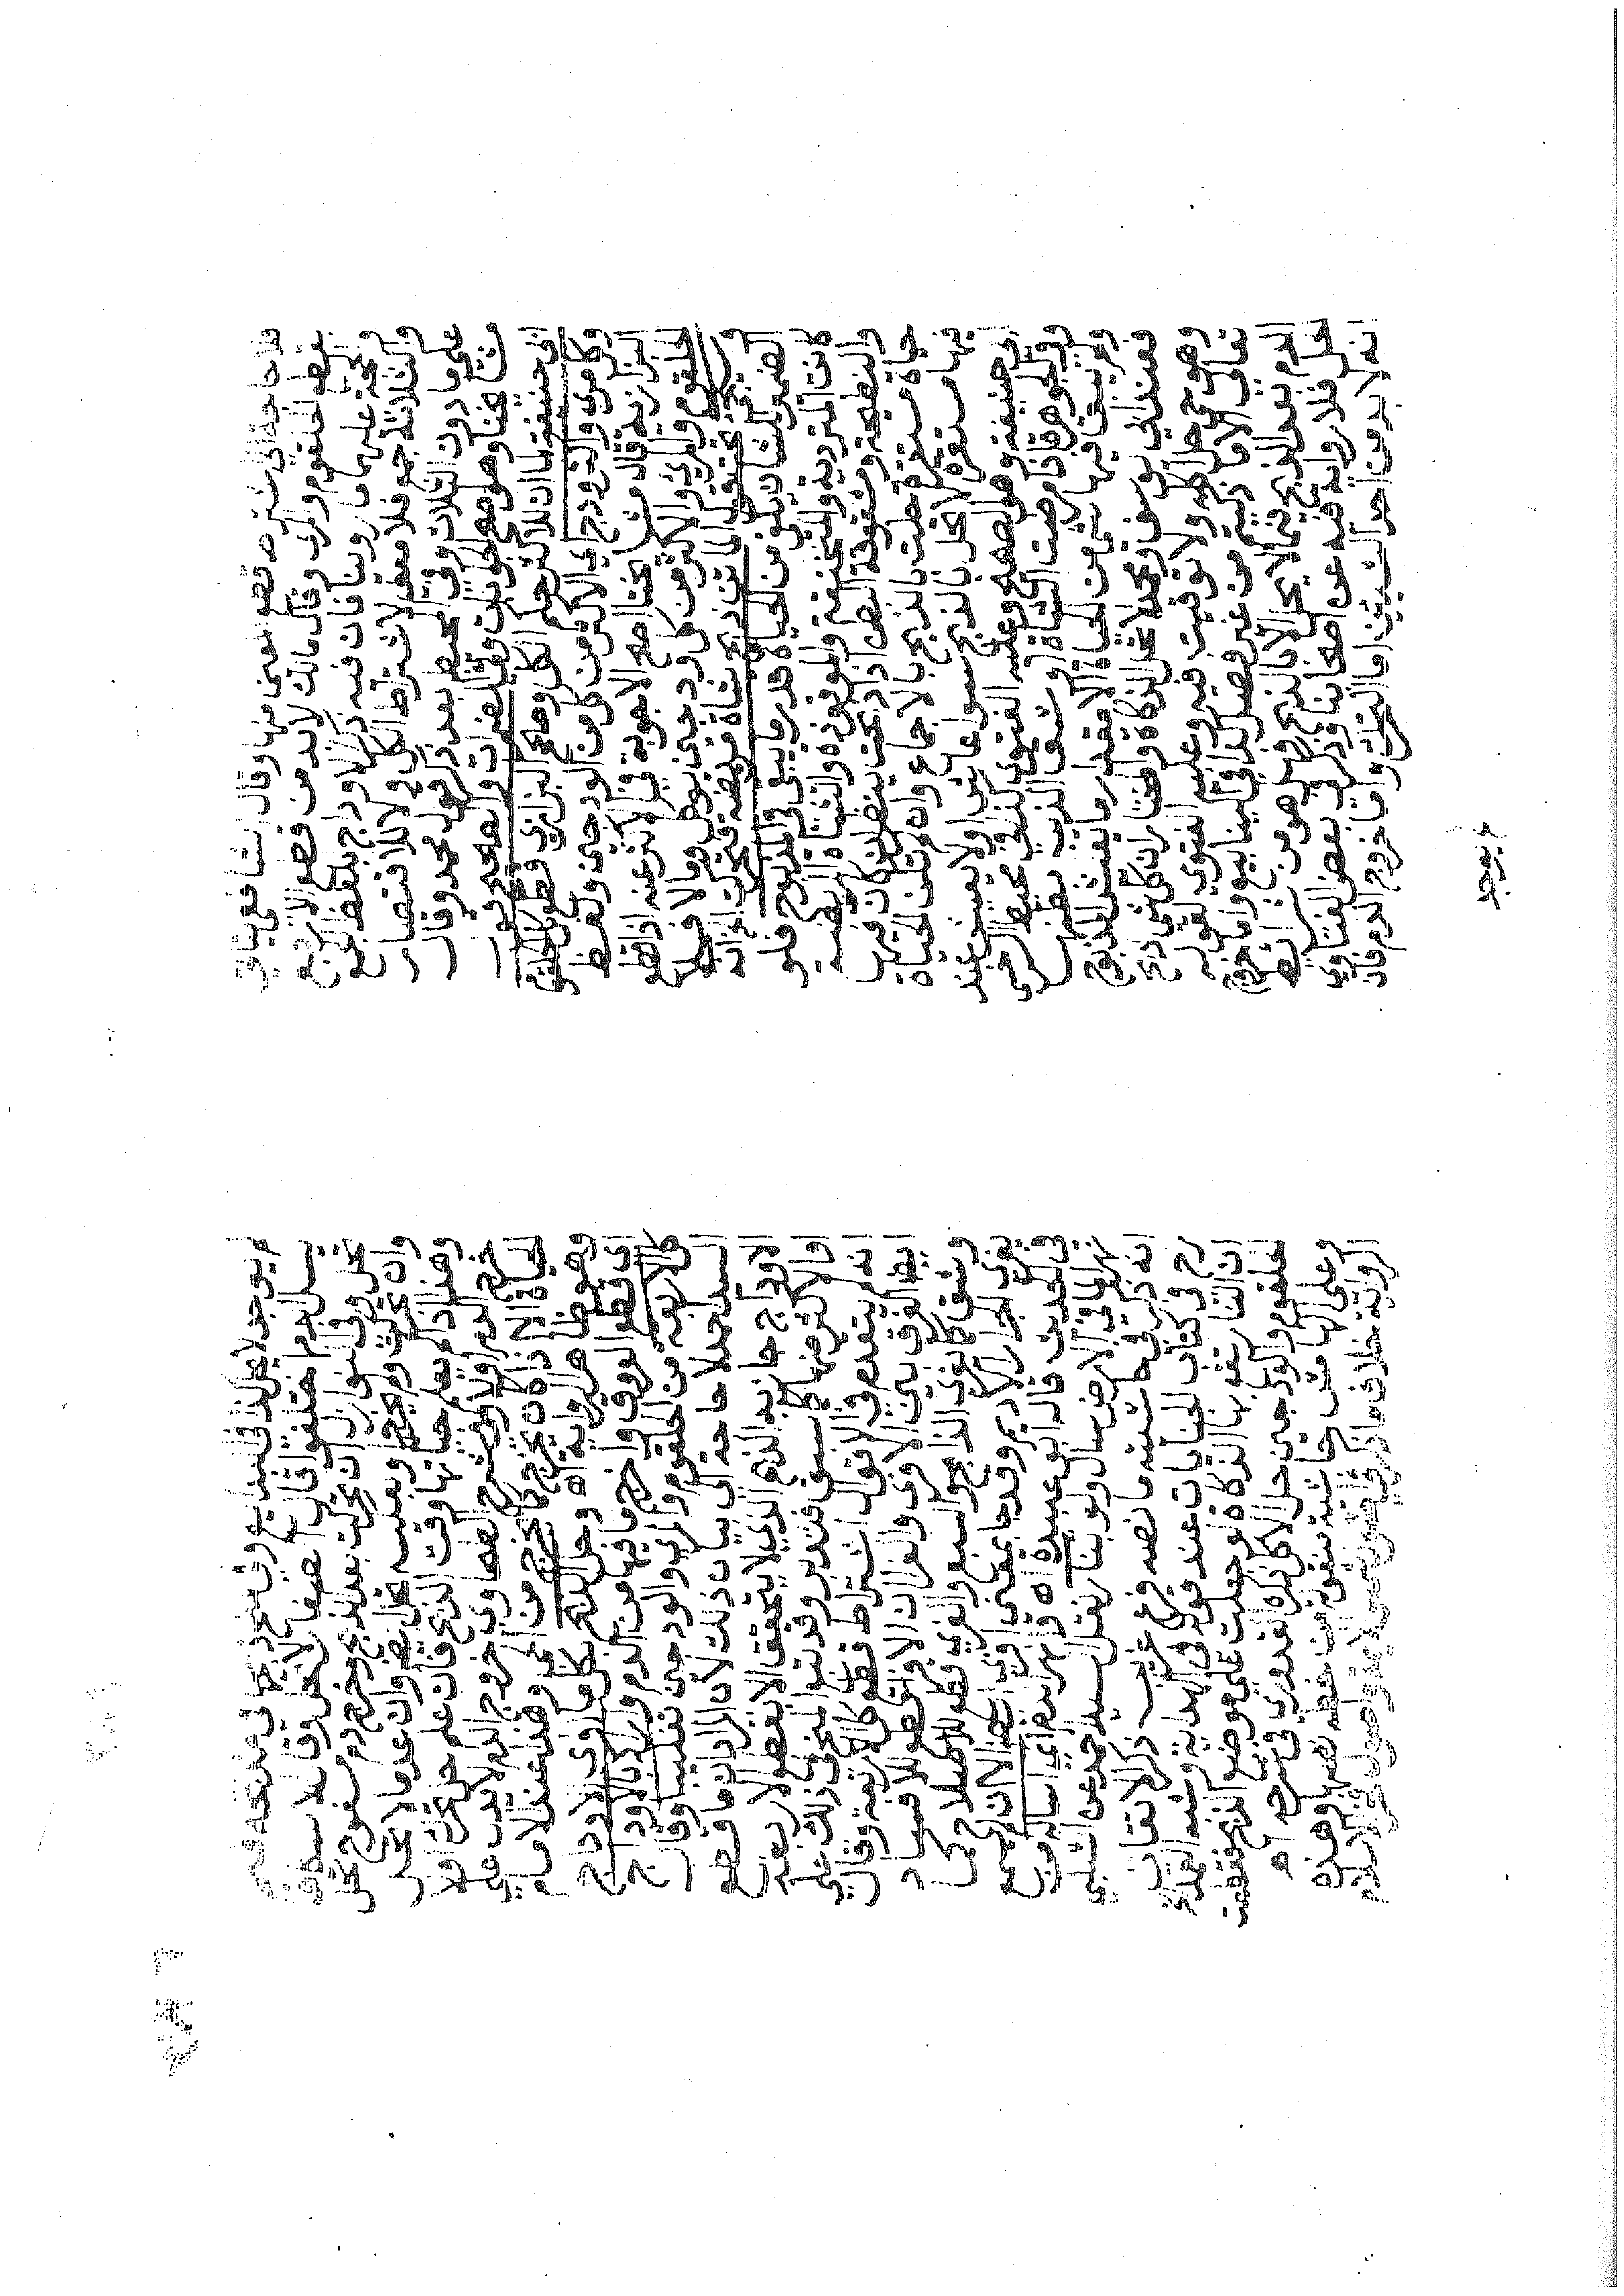 فلا حاجة الى شئ قطع شئ منها وقال الشافعي يكتفى
بقطع الحلقوم والمرى وقال مالك لابد من قطع الاربع
والحجة عليهما ما روينا فان فيه ذكر الاوداج بلفظ الجمع
والثلاثة جمع فلا معنى لاشتراط الكل ولا للاقتصار
على ما دون الثلاث وفي المحيط بعد ذكر قول محمد وقال
مشايخنا وهو اصح الجوابين وفي المضمرات والصحيح قول
ابي حنيفة لما ان للاكثر حكم الكل وصحح البزازي قطع كل الحلقوم
وكل مرى والاكثر من كل من الودجين ولفظ
البزازية قال مشايخنا اصح الاجوبة في الاكثر عنه اذا قطع
الحلقوم والمرى والاكثر من كل ودجين يؤكل وما لا فلا
تحت قول الماتن ذبح شاة مريضة فتحركت
الضمير للشان يكون من الحياة قدر ما يبقى في المذبوح فلو
كانت المتردية والمنخنقة والموقوذة والشاة المريضة
والنطيحة ومشقوقة البطن اذا ذبحت ينظر ان كان فيها
حياة مستقرة حلت بالذبح بالاجماع وان لم تكن الحياة
فيها مستقرة لا تحل بالذبح سواء عاش او لا يعيش عند
ابي حنيفة وهو الصحيح وعليه الفتوى كذا في محيط السرخسي
وفي الجوهرة اذا مرضت الشاة او شق الذئب بطنها
ولم يبق فيها شئ من الحياة الا مقدار ما يعيش المذبوح
فعند ابي يوسف ومحمد لا تحل الذكاة والمختار ان كل شئ ذبح
وهو حي حل اكله ولا توقيت فيه وعليه الفتوى لقوله
تعالى الا ما ذكيتم من غير فصل كذا في الينابيع واما خروج
الدم بعد الذبح فيما لا يحل الا بالذبح فهل هو من شرائط
الحل فلا رواية فيه عن اصحابنا وذكر في بعض الفتاوى
انه لابد من احد الشيئين اما التحرك واما خروج الدم فان
لم يوجد
لم يوجد لا يحل كذا في البدائع وفي
يسل الدم اختلفوا قال الصفار لا تحل وقال الاسكاف
تحل وفي النوازل ان تحركت بعد الذبح وخرج دم مسفوح تحل
وان تحركت ولم يخرج او بعكسه تحل ايضا وان عدما لا تحل
وهذا اذا لم يعلم حياتها وقت الذبح فان علم حل تحرك اولا
خرج الدم اولا وفي شرح الطحاوي خروج الدم لا يدل على
الحياة الا اذا كان يخرج كما يخرج من الحي وهذا عند الامام
وهو ظاهر الرواية اه وحل الذبح بكل ما افرى الاوداج
اي قطع العروق واخرج ما فيها من الدم واراد بالاوداج
كل الاربعة من الحلقوم والمرى والودجين تغليبا وقال
السيد لا حاجة الى بيان ذلك لان المراد ان ما قطع
الاوداج حل به الذبح الذي لا يتحقق الا بقطع الاربعة
فالاكثر منها كما سبق فتدبر وقد في ذلك على
انه لم يتقدم في الاقوال اشتراط قطع كل الاربعة وقال
ايضا الفرق بين الافرى والفرا ان الافرى قطع للافساد
وشق كما يفرى الذابح والسبع والفري قطع للاصلاح كما
يفرى الخراز الاديم وقد جاء بمعنى افرى ايضا الا انه لم يسمع
في الحديث قاله ابو عبيدة اه قوله انهر الدم اي اساله
في الارض سال ولو بنار نقل السيد احمد عن الشلبي
انه ذكر في حاشيته ما نصه فرع غريب ذكر الاتقاني
رح في كتاب الجنايات عند قوله في الهداية وشبه العمد
ان النار يقع بها الذكاة لو جعلت على موضع الذبح فقطعت
الحلقوم والودجين حل الاكل ذكره القدوري في شرحه اه
وعلى هامش حاشيته منقول من خطه نصها وهذه
الرواية خلاف ما ذكر